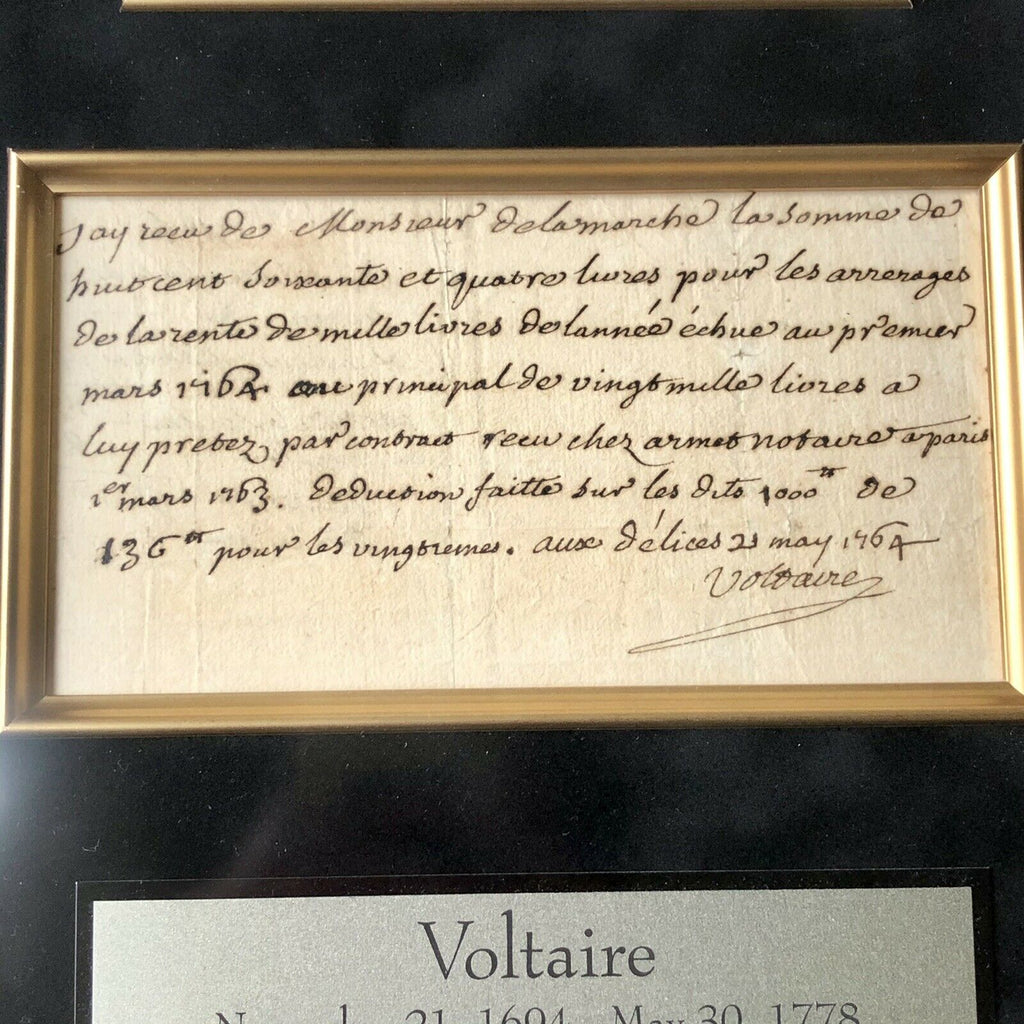 Jay recu de Monsieur delamarche la somme de
huit cent soixante et quatre livres pour les arrerages
de la rente de mille livres de lannéé échue au premier
mars 1764 au principal de vingt mille livres a
luy pretez par contract recu chez armet notaire a paris
1er mars 1763. deduction faitte sur les dits 1000tt de
136tt pour les vingtiemes. aux délices 21 may 1764
Voltaire
Voltaire
November 21, 1694 - May 30, 1778